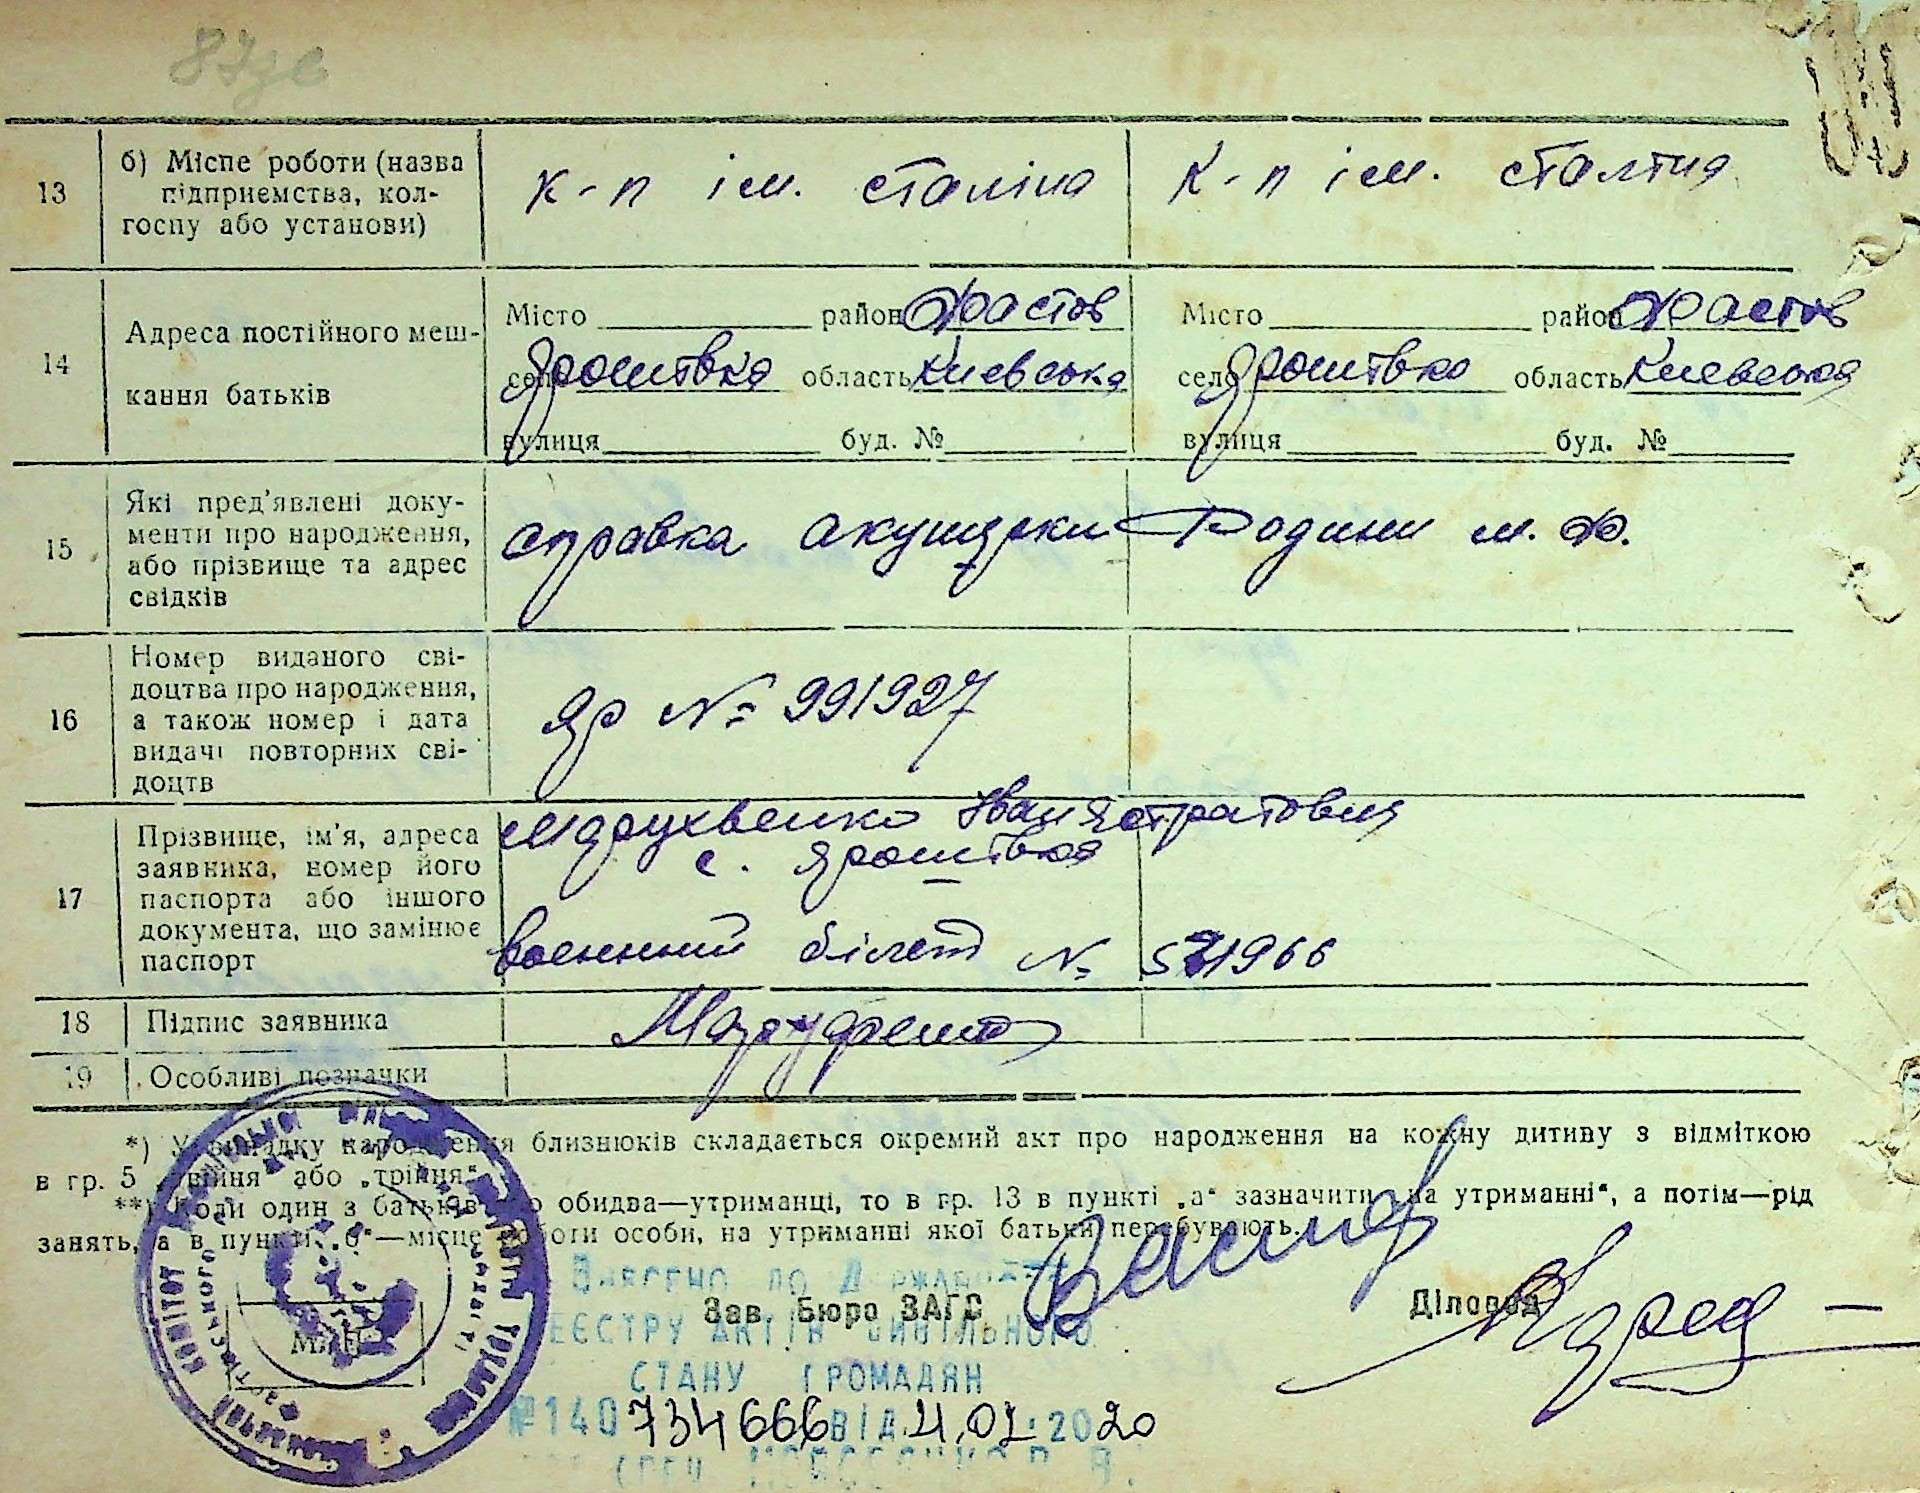 13
б) Місце роботи (назва
підприємства, кол-
госпу або установи)
к-п ім. сталіна
к-п ім. сталіна
14
Адреса постійного меш-
кання батьків
Місто район Фастов
село Ярошівка область Киевська
вулиця буд. №
Місто район Фастов
село Ярошівка область Киевська
вулиця буд. №
15
Які пред'явлені доку-
менти про народження,
або прізвище та адрес
свідків
справка акушерки Родини м. Ф.
16
Номер виданого сві-
доцтва про народження,
а також номер і дата
видачі повторних сві-
доцтв
яр № 991927
17
Прізвище, ім'я, адреса
заявника, номер його
паспорта або іншого
документа, що замінює
паспорт
Іван
с. Ярошівка
военний білет № 1966
18
Підпис заявника
19
Особливі позначки
*) У випадку народження близнюків складається окремий акт про народження на кожну дитину з відміткою
в гр. 5 „двійня" або „трійня".
**) Коли один з батьків або обидва—утриманці, то в гр. 13 в пункті „а" зазначити „на утриманні", а потім—рід
занять, а в пункті „б"—місце роботи особи, на утриманні якої батьки перебувають.
Внесено до Державного
Зав. Бюро ЗАГС
Діловод
реєстру актів цивільного
стану громадян
№140734666 від 2020